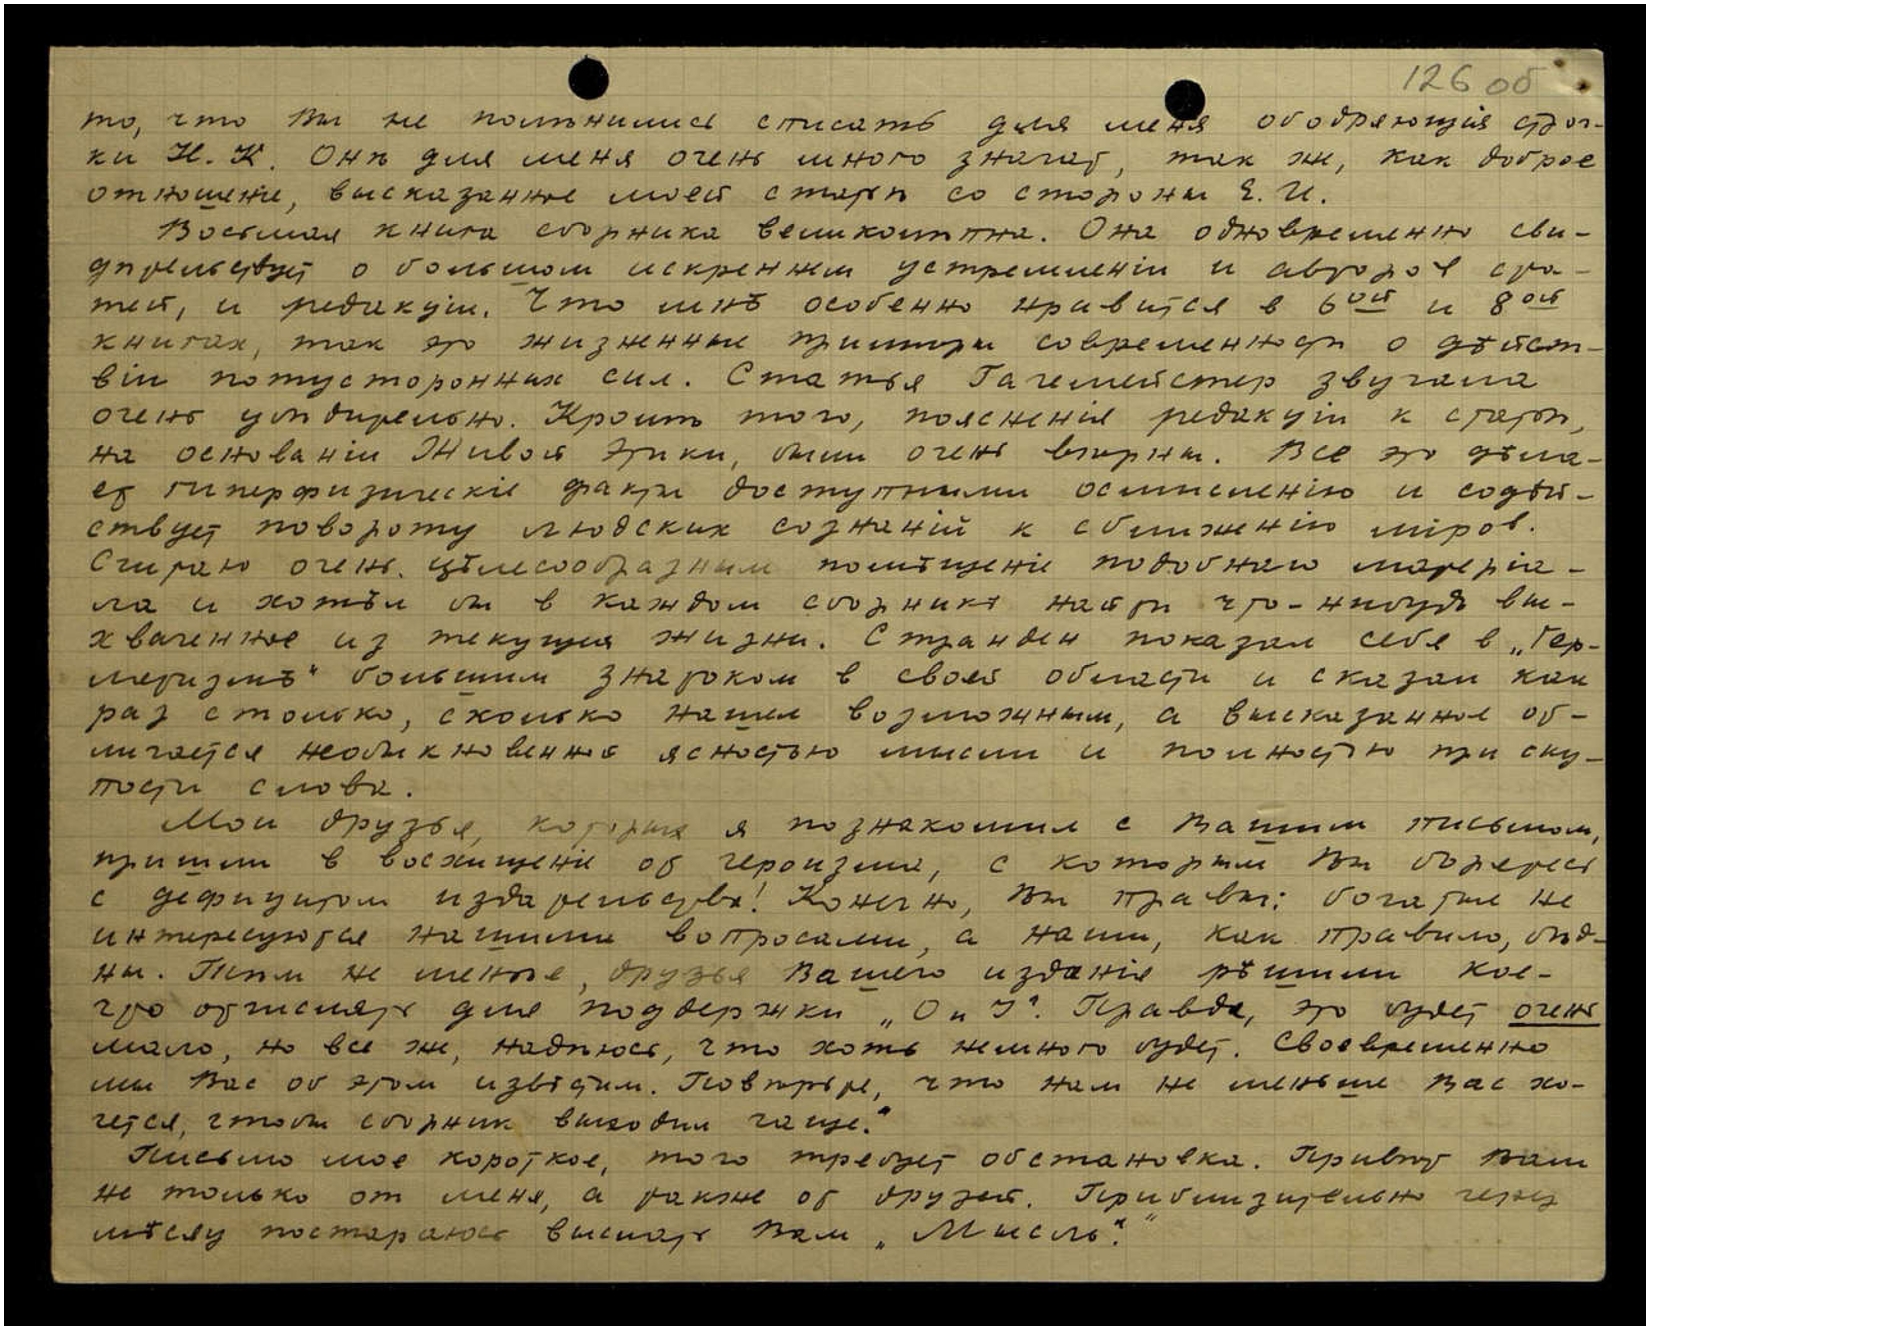 126 об
то, что Вы не полѣнились списать для меня ободряющія строч-
ки Н. К. Онѣ для меня очень много значат, так же, как доброе
отношеніе, высказанное моей статьѣ со стороны Е. И.
Восьмая книга сборника великолѣпна. Она одновременно сви-
дѣтельствует о большом искреннем устремленіи и авторов ста-
тей, и редакціи. Что мнѣ особенно нравится в 6ой и 8ой
книгах, так это жизненные примѣры современности о дѣйст-
віи потусторонних сил. Статья Гагемейстер звучала
очень убѣдительно. Кромѣ того, поясненія редакціи к статьѣ,
на основаніи Живой Этики, были очень вѣрны. Все это дѣла-
ет гиперфизическіе факты доступными осмысленію и содѣй-
ствует повороту людских сознаній к сближенію міров.
Считаю очень цѣлесообразным помѣщеніе подобнаго матеріа-
ла и хотѣл бы в каждом сборникѣ найти что-нибудь вы-
хваченное из текущей жизни. Странден показал себя в „Гер-
метизмѣ" большим знатоком в своей области и сказал как
раз столько, сколько нашел возможным, а высказанное от-
личается необыкновенной ясностью мысли и полностью при ску-
пости слова.
Мои друзья, которых я познакомил с Вашим письмом,
пришли в восхищеніе от героизма, с которым Вы боретесь
с дефицитом издательства! Конечно, Вы правы: богатые не
интересуются нашими вопросами, а наши, как правило, бѣд-
ны. Тѣм не менѣе, друзья Вашего изданія рѣшили кое-
что отчислять для поддержки „О и У". Правда, это будет очень
мало, но все же, надѣюсь, что хоть немного будет. Своевременно
мы Вас об этом извѣстим. Повѣрьте, что нам не меньше Вас хо-
чется, чтобы сборник выходил чаще."
Письмо мое короткое, того требует обстановка. Привѣт Вам
не только от меня, а также от друзей. Приблизительно через
мѣсяц постараюсь выслать Вам „Мысль".